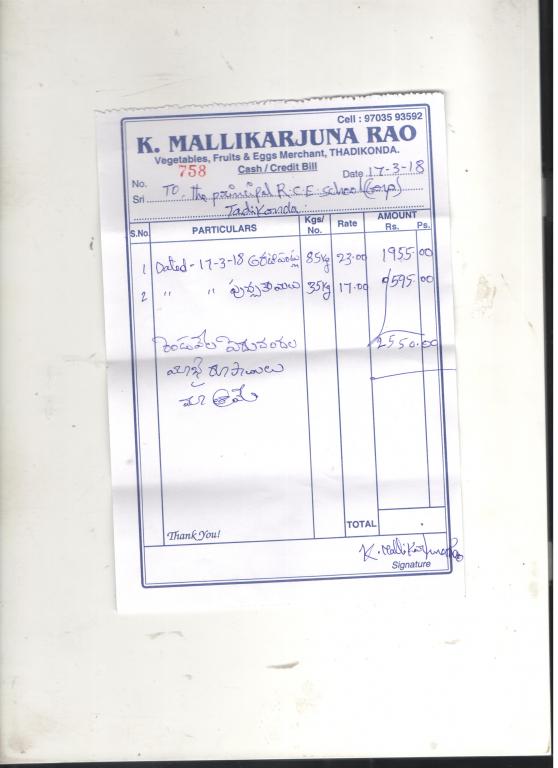 Cell : 97035 93592
K. MALLIKARJUNA RAO
Vegetables, Fruits & Eggs Merchant, THADIKONDA.
758 Cash / Credit Bill
No. Date 17-3-18
Sri To, the principal R.C.E. School
Tadikonda.
S.No. PARTICULARS Kgs/ No. Rate AMOUNT Rs. Ps.
1 Dated - 17-3-18 85kg 23.00 1955.00
2 " " 35kg 17.00 595.00
2550.00
రూపాయలు
మాత్రమే
Thank You! TOTAL
K. Mallikarjuna Rao
Signature